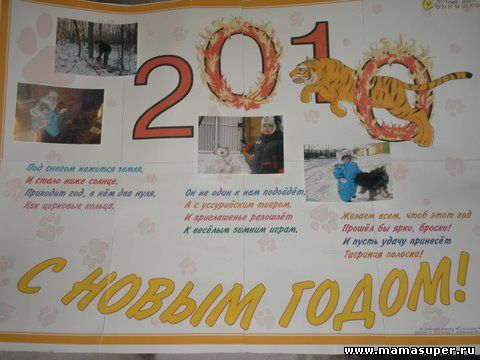 2010
Под снегом нежится земля,
И стало ниже солнце,
Приходит год, в нём два нуля,
Как цирковые кольца.
Он не один к нам подойдёт,
А с уссурийским тигром,
И приглашенья разошлёт
К весёлым зимним играм.
Желаем всем, чтоб этот год
Прошёл бы ярко, броско!
И пусть удачу принесёт
Тигриная полоска!
С НОВЫМ ГОДОМ!
www.mamasuper.ru